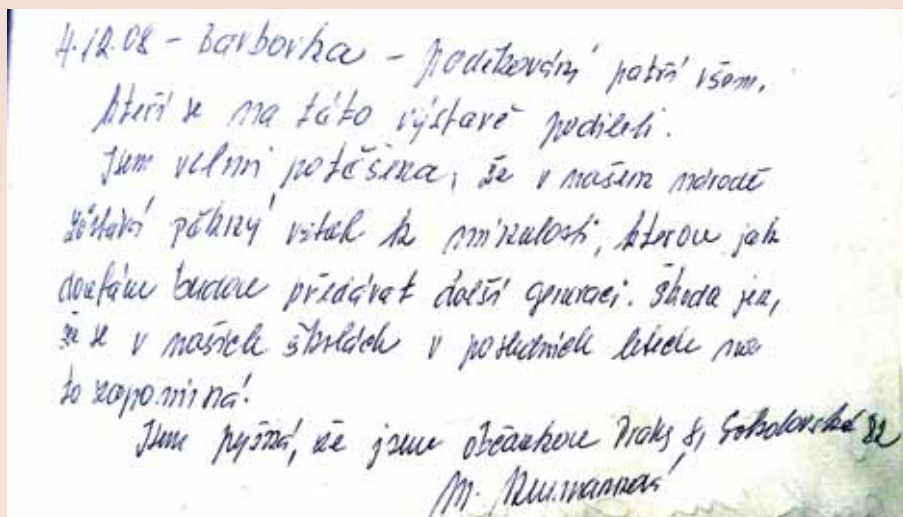 4.12.08 - Barborka - Poděkování patří všem,
kteří se na táto výstavě podíleli.
Jsem velmi potěšena, že v našem národě
zůstává pěkný vztah k minulosti, kterou jak
doufáme budou předávat další generaci. Škoda jen,
že se v našich školách v posledních letech na
to zapomíná!
Jsem pyšná, že jsme občankou Prahy 8, Sokolovská 82
M. Neumannová